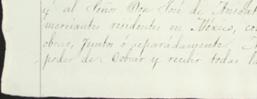 y al Señor Don José de
merciantes residentes en México, co
obrar, juntos ó separadamente
poder de cobrar y recibir todas la